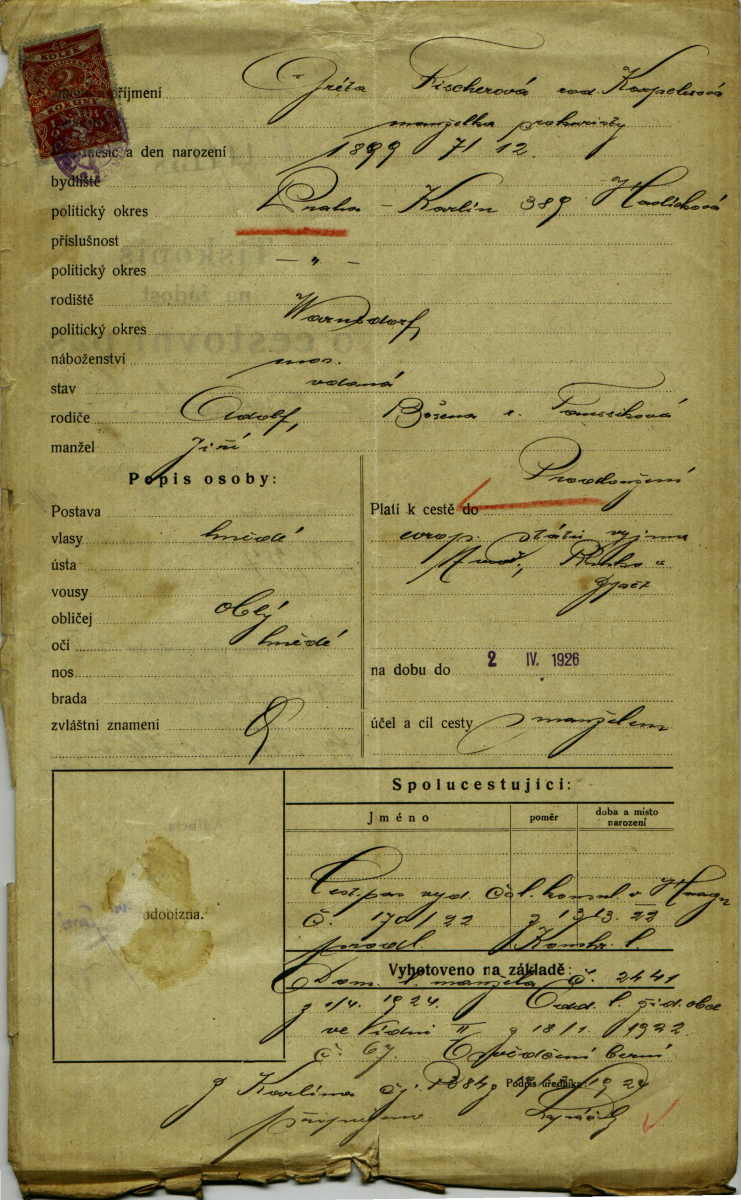 KOLEK
2
KORUNY
příjmení Gréta Fischerová roz. Karpelesová
manželka prokuristy
měsíc a den narození 1899 7/12.
bydliště
politický okres Praha – Karlín 389 Havlíčková
příslušnost
politický okres – „ –
rodiště
politický okres Warnsdorf,
náboženství mos.
stav vdaná
rodiče Adolf, Božena r.
manžel Jiří
Popis osoby:
Prodloužení
Postava
Platí k cestě do
vlasy hnědé
evrop. států vyjma
ústa
Rusko a
vousy
Egypt
obličej oblý
oči hnědé
nos
na dobu do 2 IV. 1926
brada
zvláštní znamení
účel a cíl cesty s manželem
Spolucestující:
Jméno poměr doba a místo narození
Cest. pas vyd. čsl. konsul. v Haagu
č. 170/22 z 13/3. 22
prodl.
podobizna.
Vyhotoveno na základě:
Dom. l. manžela č. 2441
z 1/4. 1924. Odd. l. žid. obce
ve Vídni II z 18/1. 1922
č. 67. Osvědčení berní
z Karlína čj.
Podpis úředníka:
připojeno